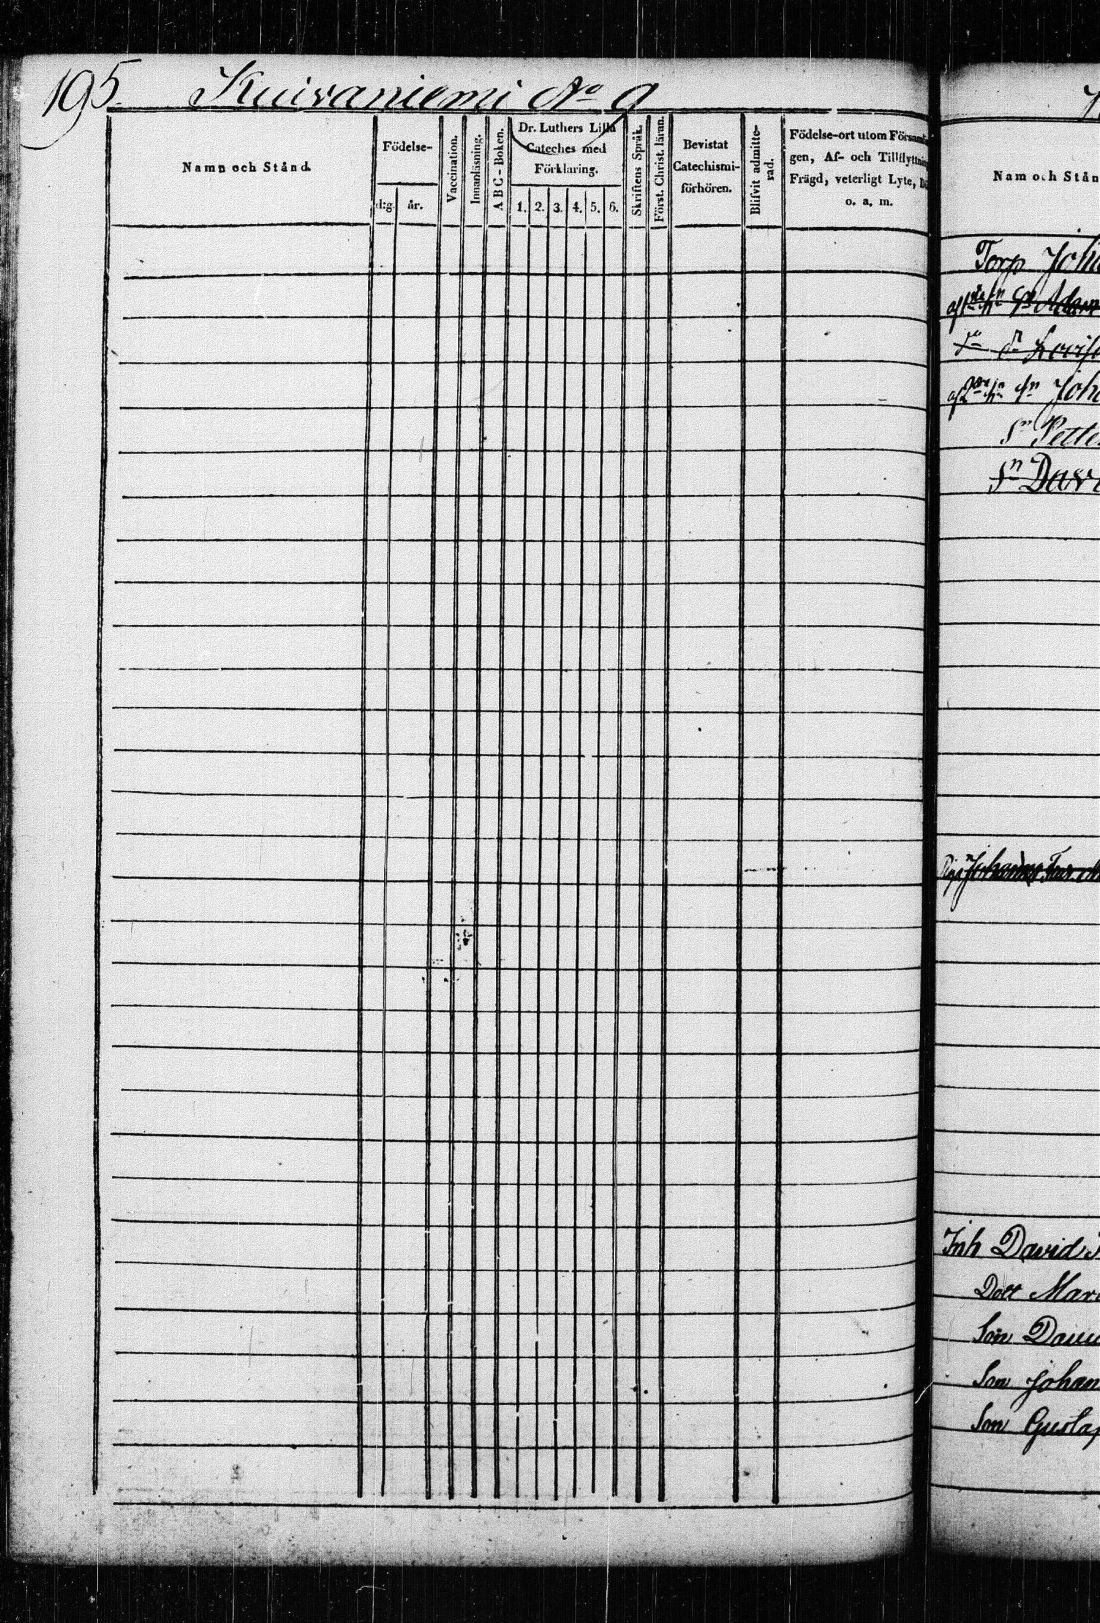 195. Kuivaniemi No 9
Namn och Stånd.
Födelse-
d:g. år.
Vaccination.
Innanläsning.
ABC-Boken.
Dr. Luthers Lilla
Cateches med
Förklaring.
1. 2. 3. 4. 5. 6.
Skriftens Språk.
Först. Christ. läran.
Bevistat
Catechismi-
förhören.
Blifvit admitte-
rad.
Födelse-ort utom Försam-
gen, Af- och Tillflyttnin
Frägd, veterligt Lyte,
o. a. m.
Nam och Stån
Torp Joha
Adam
Lovisa
Joh
Sn Petter
Sn Davi
Johannes
Inh David
Dott Mari
Son David
Son Johan
Son Gustaf